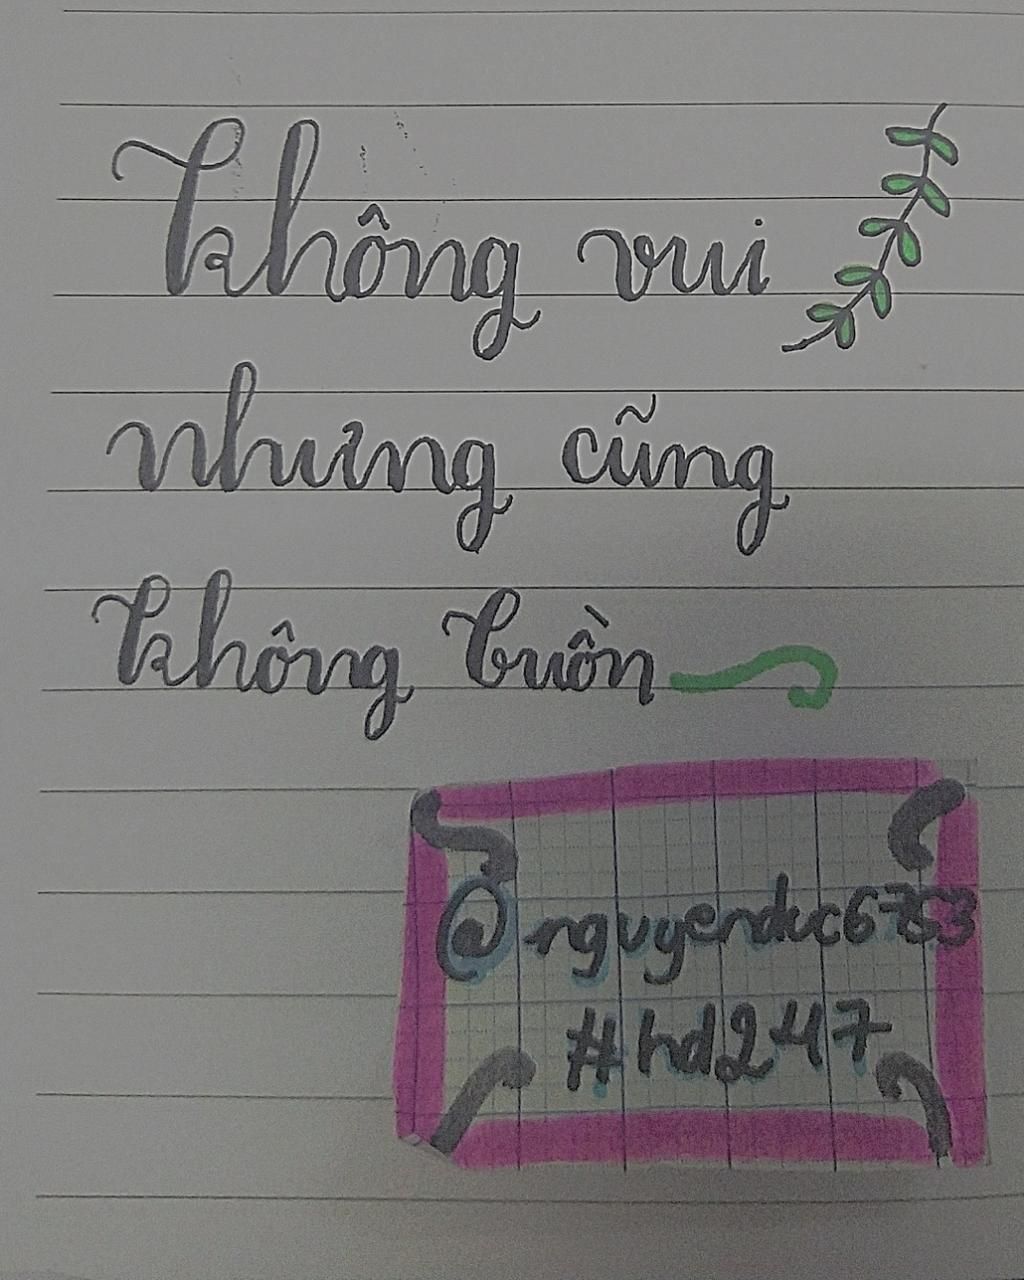 không vui
nhưng cũng
không buồn
@nguyenduc6753
#hd247